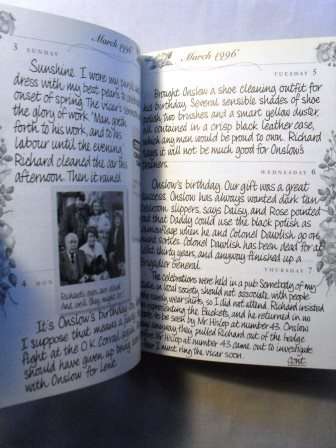 March 1996
3 SUNDAY
Sunshine. I wore my
dress with my best pearls to
onset of spring. The vicar's
the glory of work. "Man goeth
forth to his work, and to his
labour until the evening.
Richard cleaned the car this
afternoon. Then it rained.
4 MON
It's Onslow's birthday
I suppose that means a
fight at the O.K. Corral
should have given up being
with Onslow for Lent.
March 1996
TUESDAY 5
Bought Onslow a shoe cleaning outfit for
his birthday. Several sensible shades of shoe
polish, two brushes and a smart yellow duster,
all contained in a crisp black leather case,
which any man would be proud to own. Richard
says it will not be much good for Onslow's
WEDNESDAY 6
Onslow's birthday. Our gift was a great
success. Onslow has always wanted dark tan
bedroom slippers, says Daisy, and Rose pointed
out that Daddy could use the black polish as
camouflage when he and Colonel Dawlish go on
sorties. Colonel Dawlish has been dead for at
least thirty years, and anyway finished up a
Brigadier General.
THURSDAY 7
The celebrations were held in a pub. Somebody of my
in local society should not associate with people
who rarely wear shirts, so I did not attend. Richard insisted
on representing the Buckets, and he returned in no
to be seen by Mr Hislop at number 43. Onslow
they pulled Richard out of the hedge
Mr Hislop at number 43 came out to investigate
I must ring the vicar soon.
cont